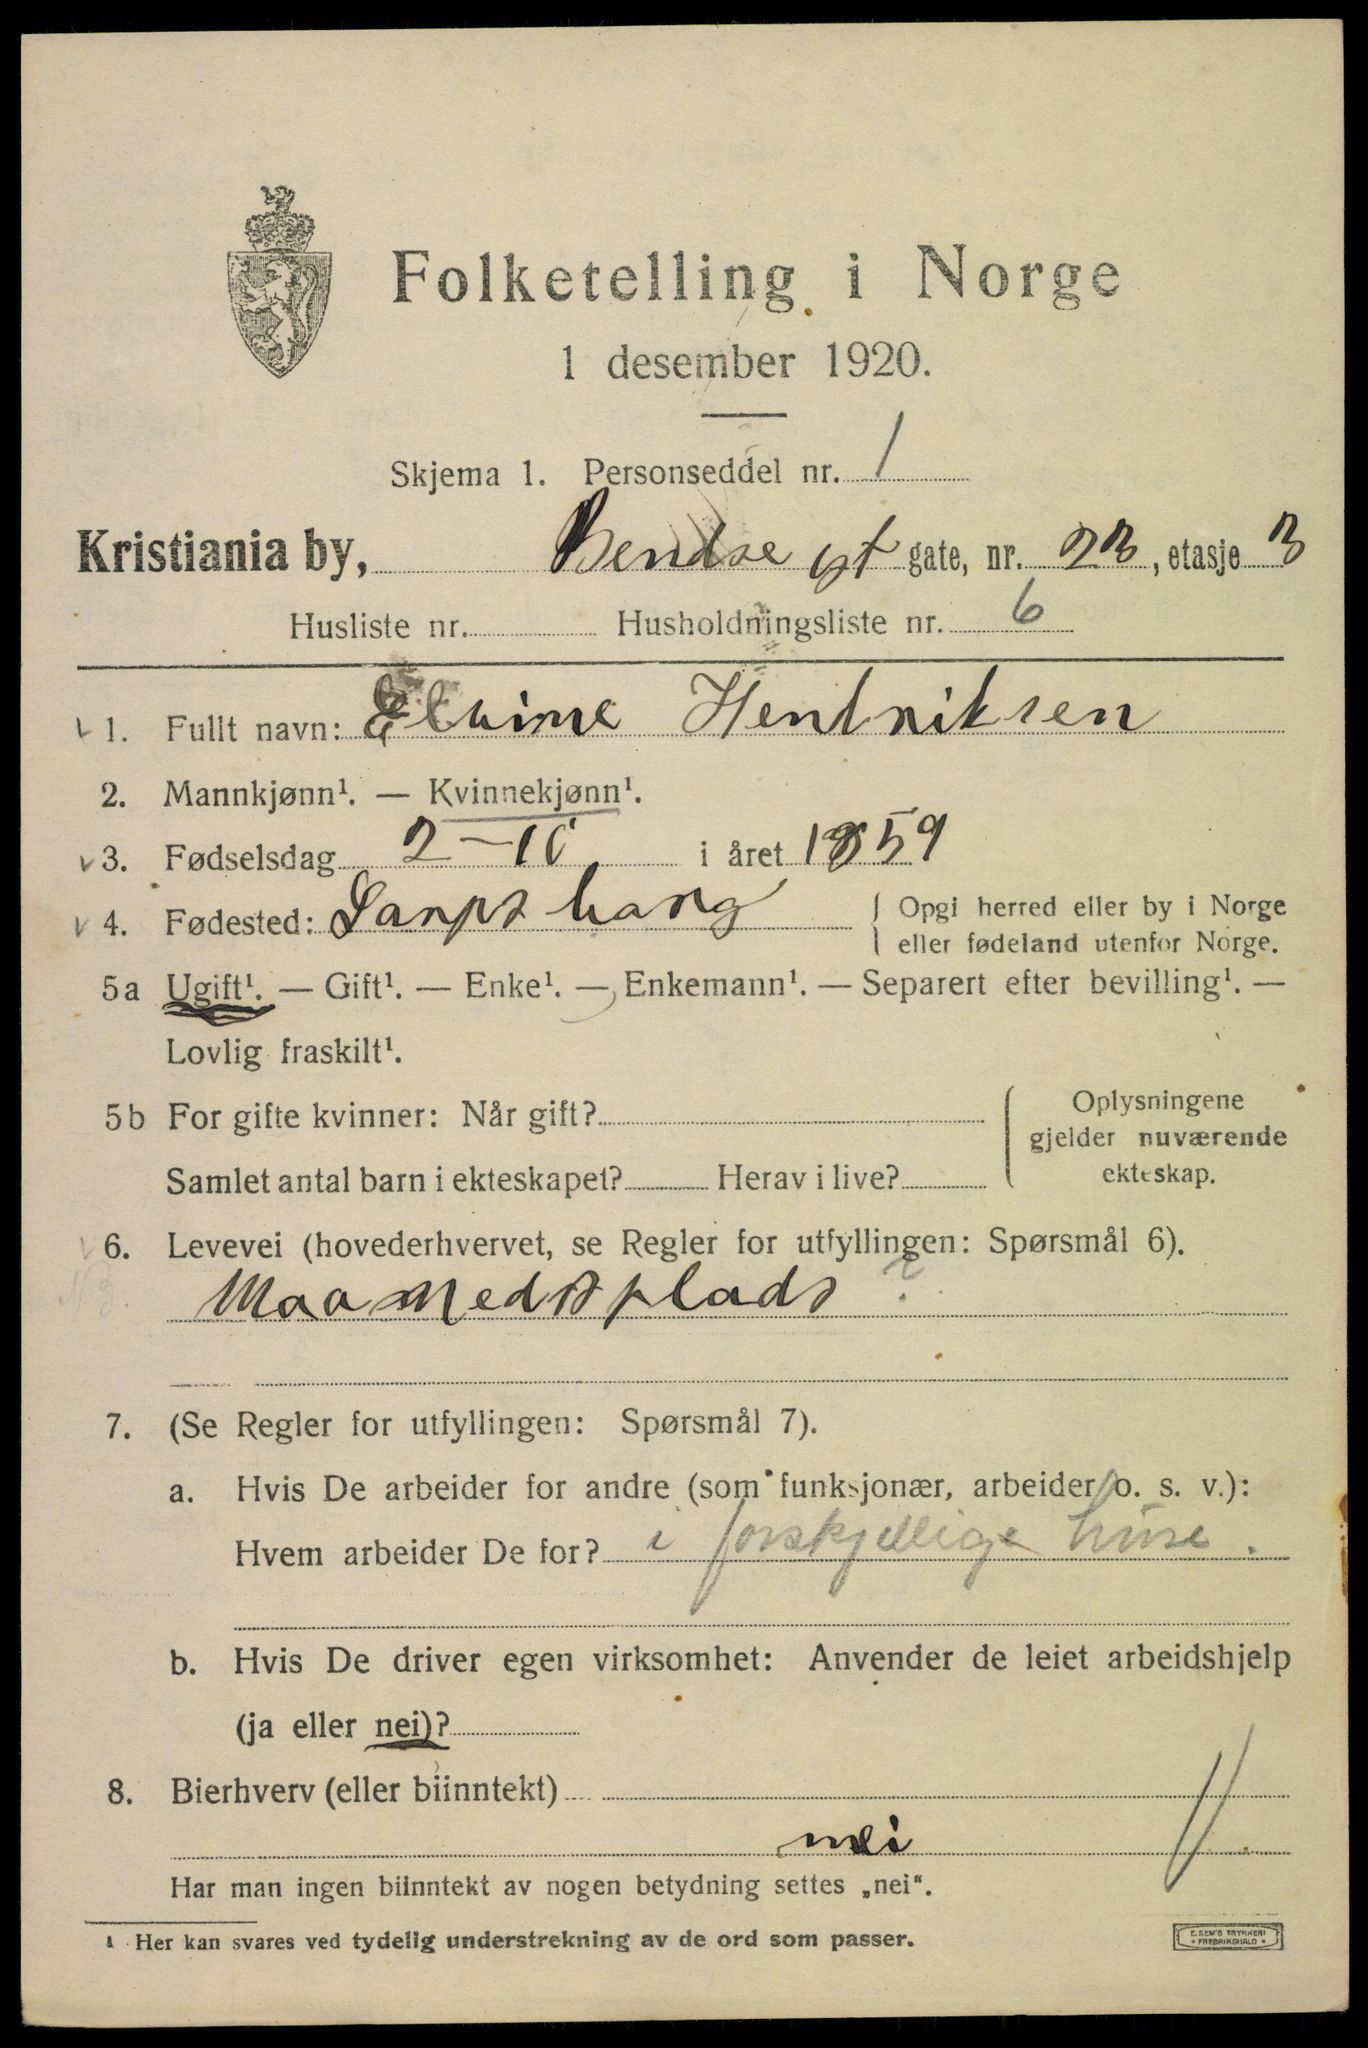 Folketelling i Norge
1 desember 1920.
Skjema 1. Personseddel nr. 1
Kristiania by, Bendse gt gate, nr. 23, etasje 3
Husliste nr. Husholdningsliste nr. 6
1. Fullt navn: Elvine Hendriksen
2. Mannkjønn¹. — Kvinnekjønn¹.
3. Fødselsdag 2-10 i året 1859
4. Fødested: Sarpsborg { Opgi herred eller by i Norge
eller fødeland utenfor Norge.
5a Ugift¹. — Gift¹. — Enke¹. — Enkemann¹. — Separert efter bevilling¹. —
Lovlig fraskilt¹.
5b For gifte kvinner: Når gift? { Oplysningene
gjelder nuværende
Samlet antal barn i ekteskapet? Herav i live? ekteskap.
6. Levevei (hovederhvervet, se Regler for utfyllingen: Spørsmål 6).
Maanedsplads ?
7. (Se Regler for utfyllingen: Spørsmål 7).
a. Hvis De arbeider for andre (som funksjonær, arbeider o. s. v.):
Hvem arbeider De for? i forskjellige huse.
b. Hvis De driver egen virksomhet: Anvender de leiet arbeidshjelp
(ja eller nei)?
8. Bierhverv (eller biinntekt)
nei
Har man ingen biinntekt av nogen betydning settes „nei“.
¹ Her kan svares ved tydelig understrekning av de ord som passer.
E. SEM'S TRYKKERI
• FREDRIKSHALD •